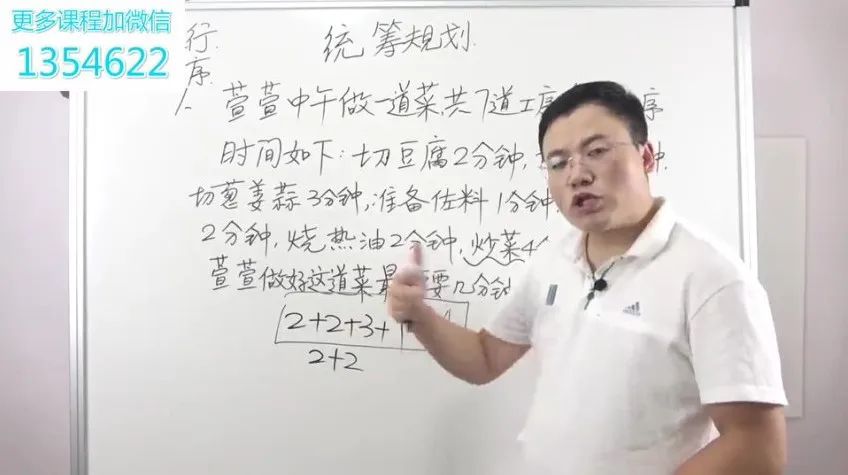 更多课程加微信
1354622
行
序
统筹规划
萱萱中午做一道菜,共7道工序 序
时间如下:切豆腐2分钟, 钟.
切葱姜蒜3分钟,准备佐料1分钟
2分钟,烧热油2分钟,炒菜4
萱萱做好这道菜最 要几分钟
2+2+3+
2+2
adidas